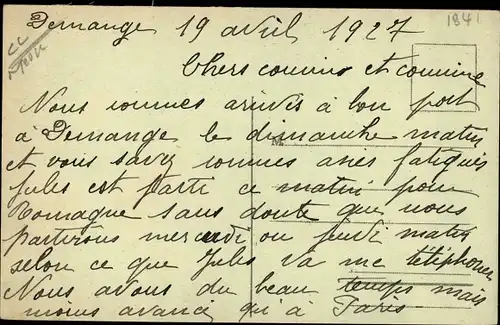 Demange 19 avril 1927
1841
Chers cousins et cousine
Nous sommes arrivés à bon port
à Demange le dismanche matin
M
et vous savez sommes asses fatigués
Jules est parti ce matin pour
Romagne sans doute que nous
partirons mercredi ou jeudi matin
selon ce que Jules va me téléphoner
Nous avons du beau temps mais
moins avancé qu'à Paris